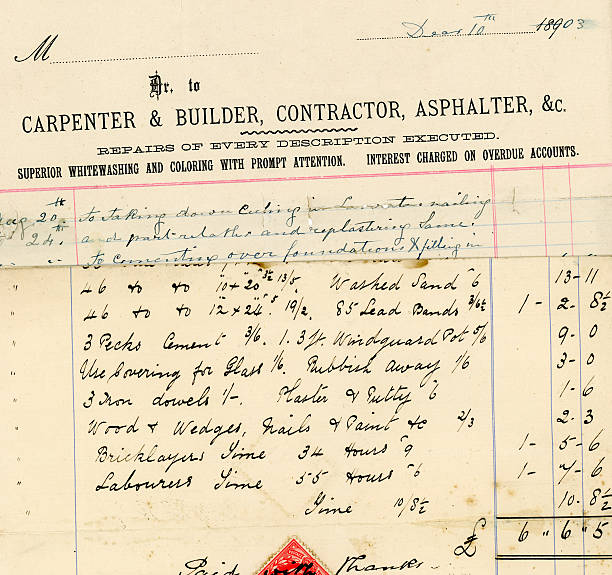 M
Decr 10th 1903
Dr. to
CARPENTER & BUILDER, CONTRACTOR, ASPHALTER, &c.
REPAIRS OF EVERY DESCRIPTION EXECUTED.
SUPERIOR WHITEWASHING AND COLORING WITH PROMPT ATTENTION. INTEREST CHARGED ON OVERDUE ACCOUNTS.
20th To taking down ceiling in nailing
24th and part relaths and replastering same.
To cementing over foundations & fitting in
46 do do 10" x 20" 13/5 Washed Sand 6 13-11
46 do do 12" x 24" 19/2. 85 Lead Bands 3/6½ 1-2-8½
3 Pecks Cement 3/6. 1. 3 ft. Windguard Pot 5/6 9-0
Use Covering for Glass 1/6. Rubbish away 1/6 3-0
3 Iron dowels 1/-. Plaster & Putty 6 1-6
Wood & Wedges, Nails & Paint &c 2/3 2-3
Bricklayers Time 34 Hours 9 1-5-6
Labourers Time 55 Hours 6 1-7-6
Time 10/8½ 10-8½
£ 6 " 6 " 5
Paid with thanks